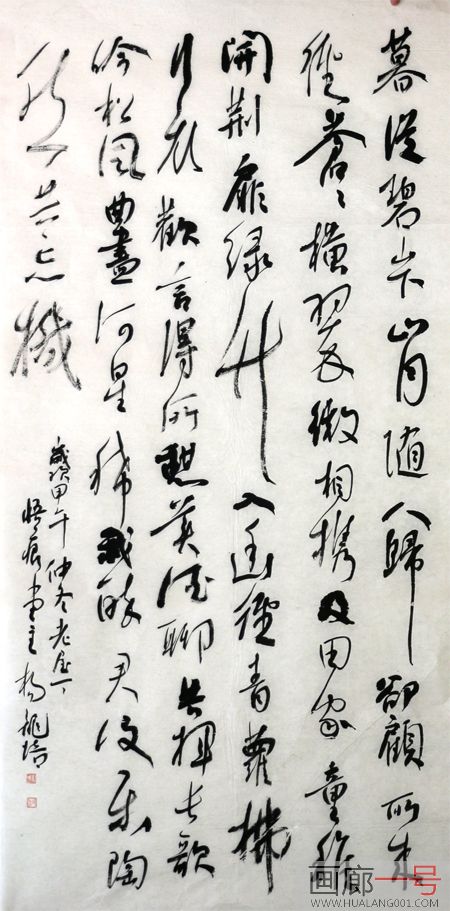 暮從碧山下山月随人歸卻顧所来
徑蒼々橫翠微相携及田家童稚
開荊扉绿竹入幽徑青蘿拂
行衣歡言得所憩美酒聊共揮長歌
吟松風曲盡河星稀我醉君復樂陶
然共忘機
歲次甲午仲冬老屋下
堂主楊龍培
画廊一号
WWW.HUALANG001.COM